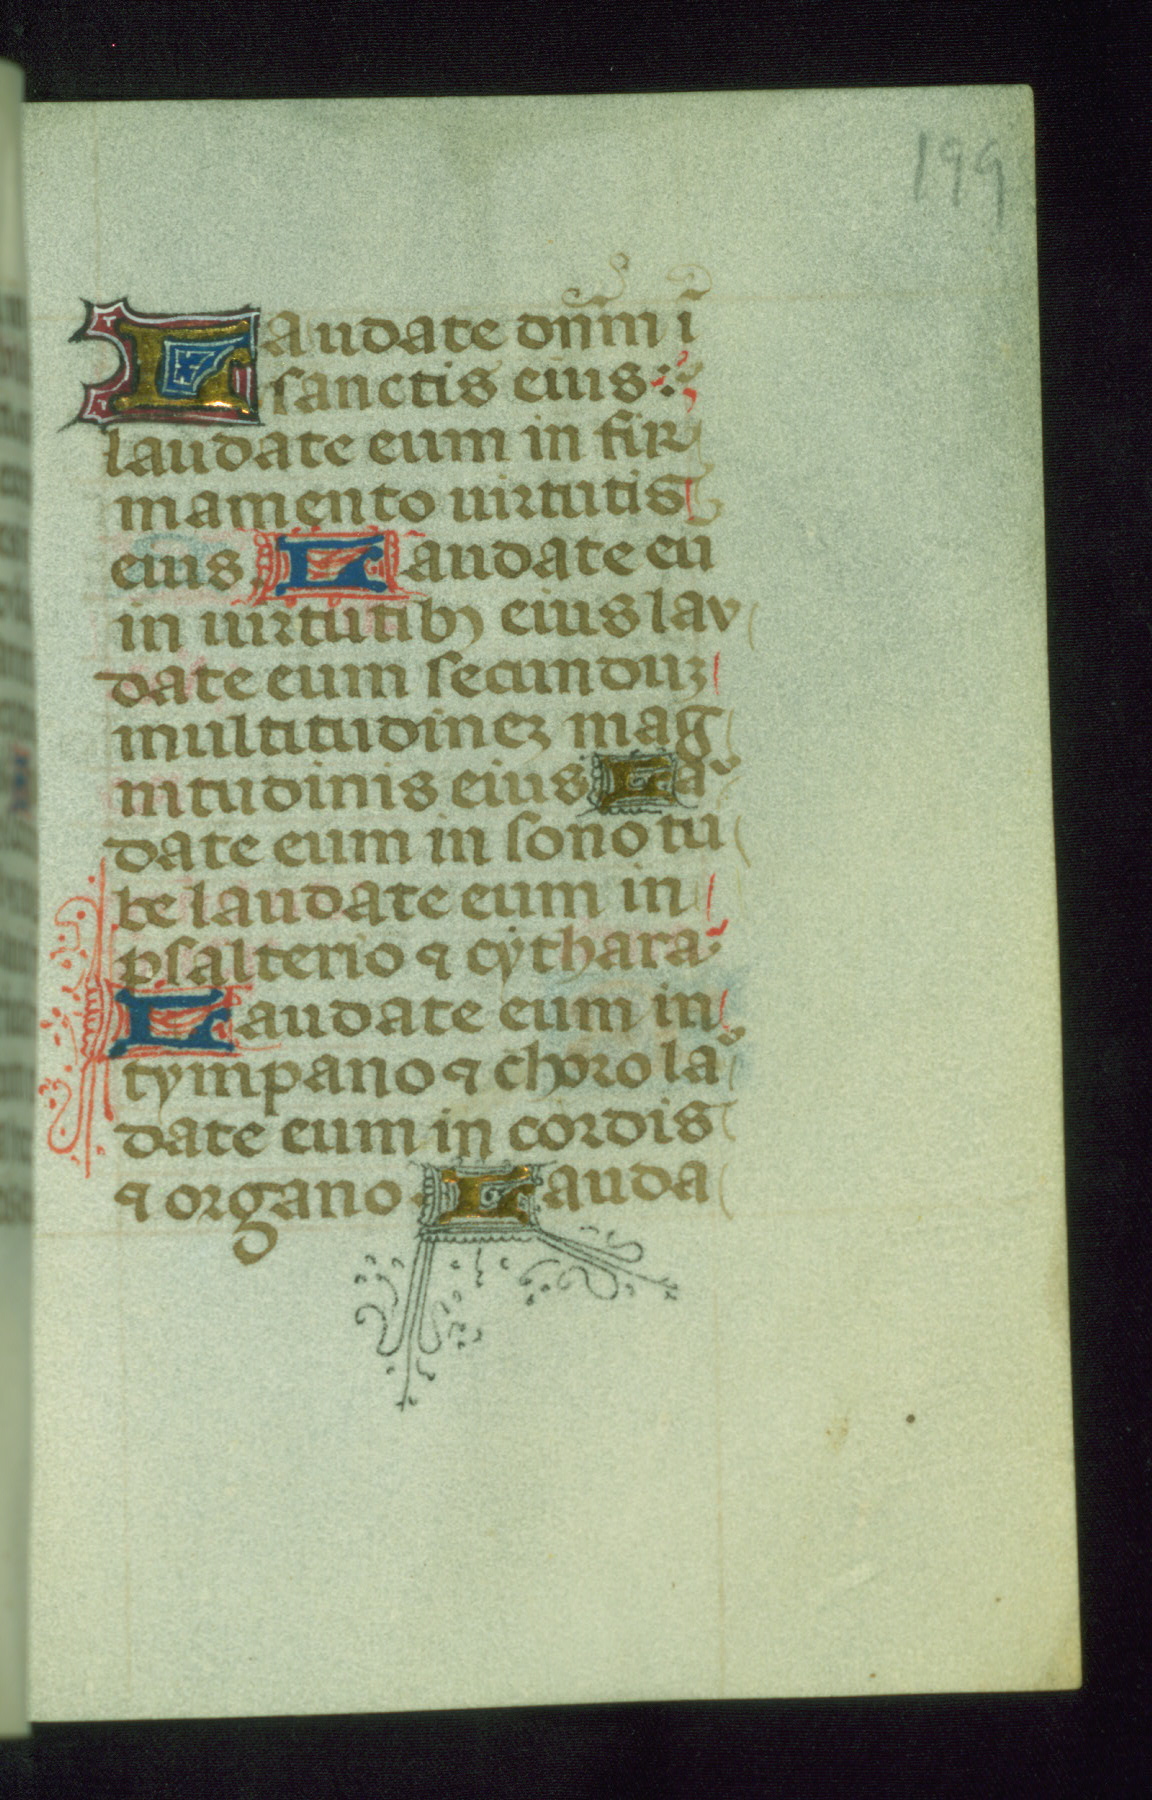 199
Laudate dn̄m ī
sanctis eius:
laudate eum in fir
mamento uirtutis
eius. Laudate eu
in uirtutibꝫ eius lau
date eum secunduꝫ
multitudineꝫ mag
nitudinis eius La
date eum in sono tu
be laudate eum in
psalterio ⁊ cẏthara
Laudate eum in
tympano ⁊ choro la
date eum in cordis
⁊ organo Lauda